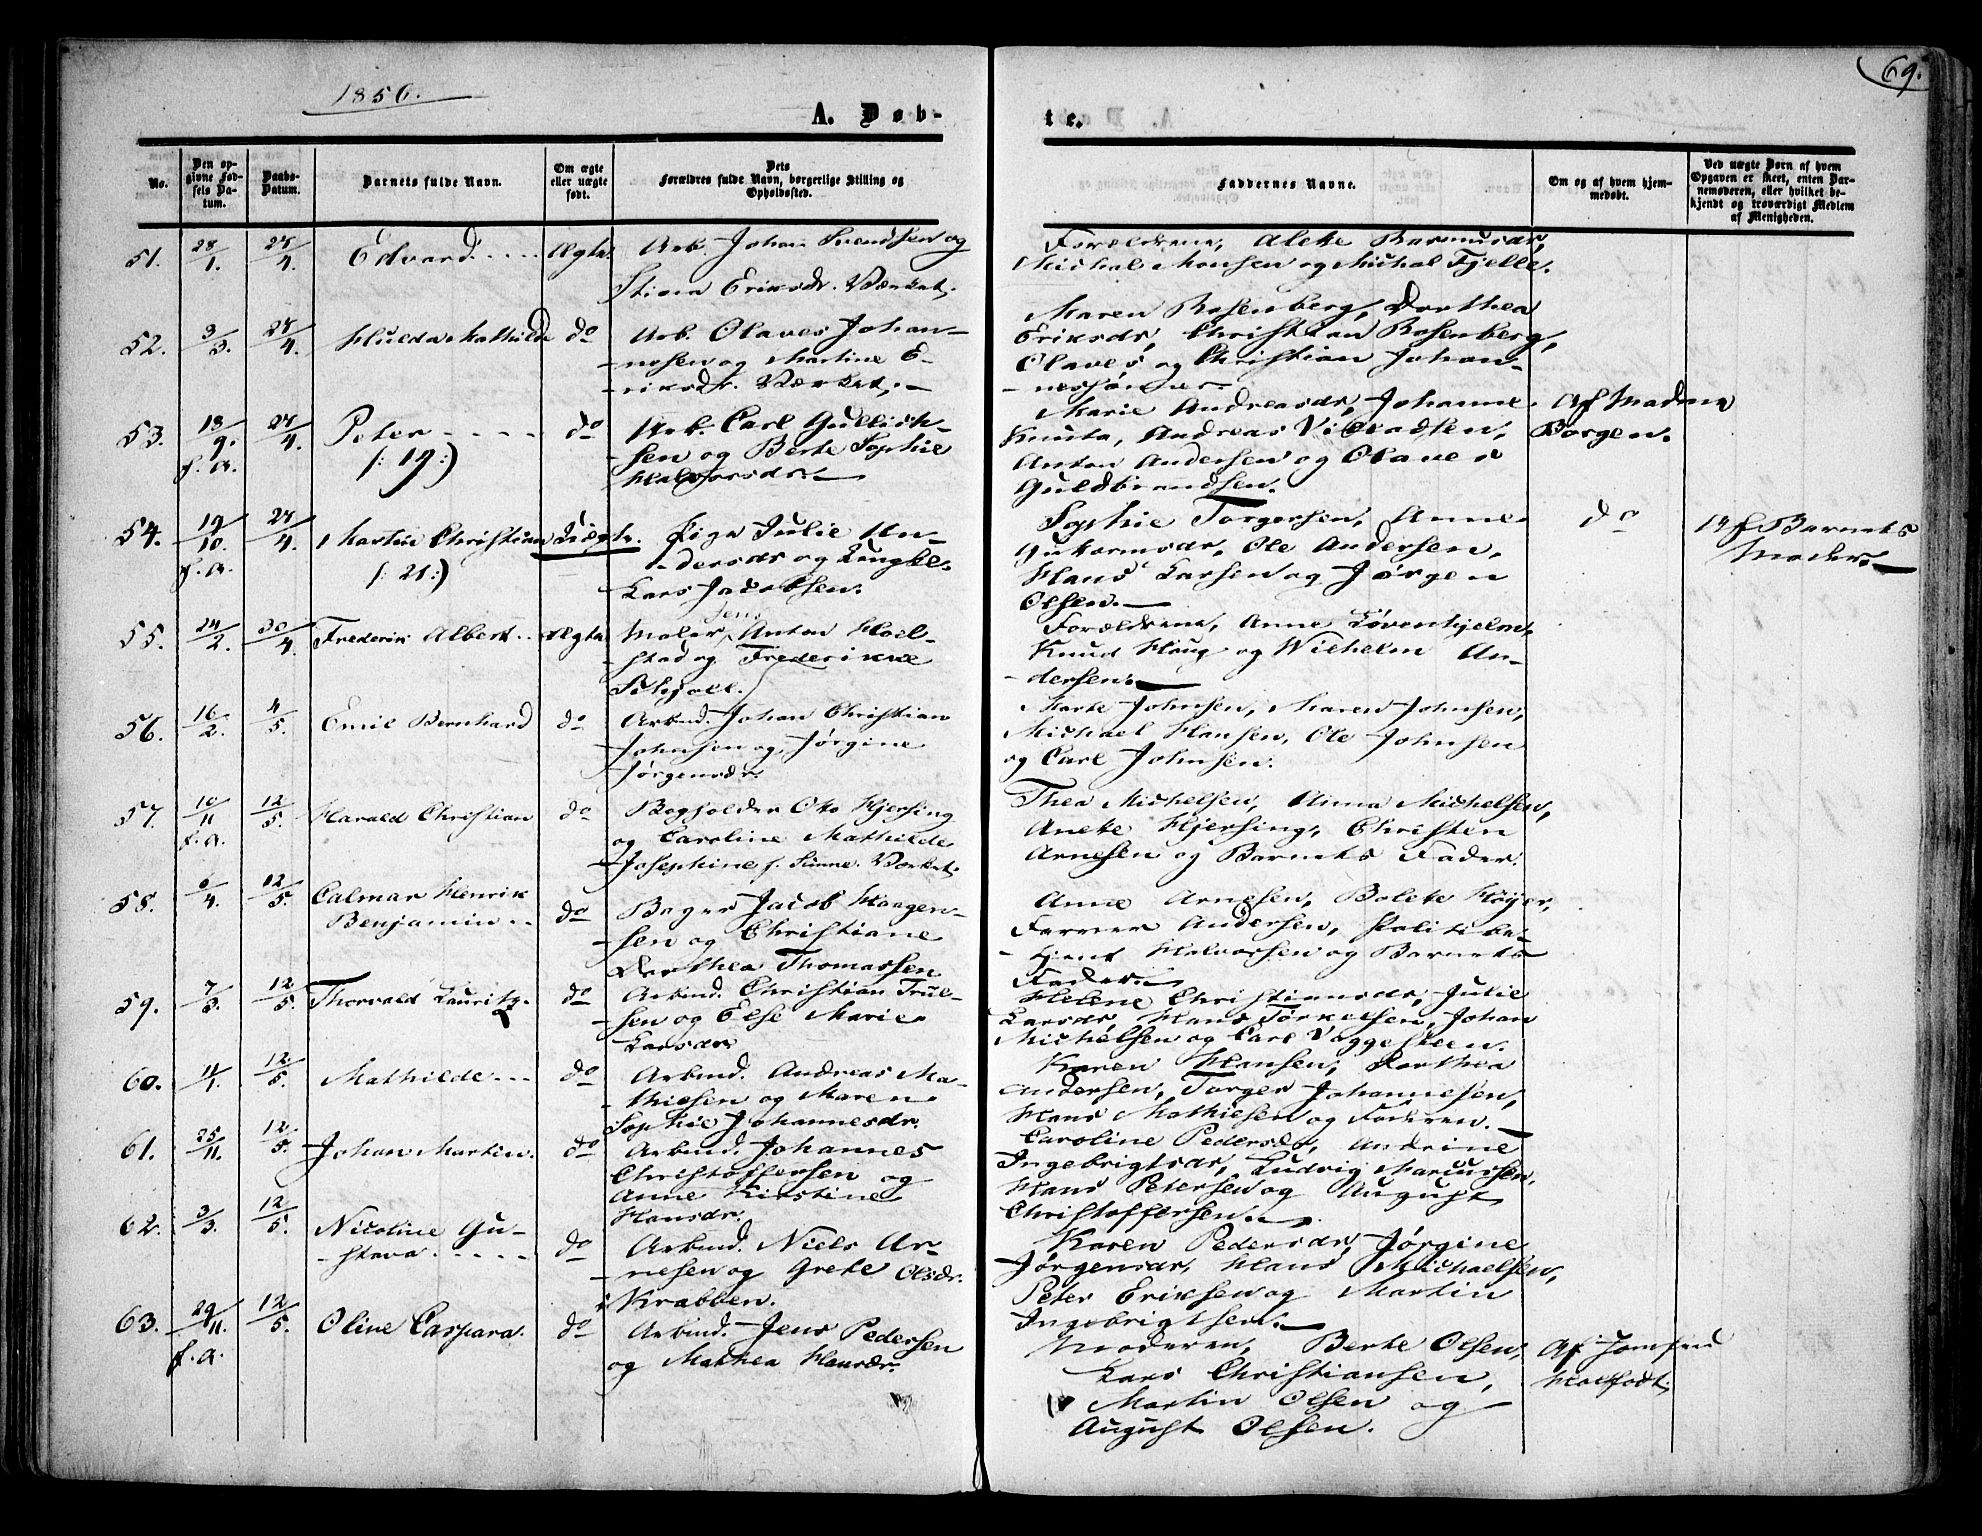 1856.
69.
A. Døb-
te.
No.
Den op-
givne Fød-
sels Da-
tum.
Daabs-
Datum.
Barnets fulde Navn.
Om ægte
eller uægte
født.
Dets
Forældres fulde Navn, borgerlige Stilling og
Opholdssted.
Faddernes Navne.
Om og af hvem hjem-
medøbt.
Ved uægte Børn af hvem
Opgaven er skeet, enten Bar-
nemoderen, eller hvilket be-
kjendt og troværdigt Medlem
af Menigheden.
51. 28/1. 28/4. Edvard. Ægte.
Arb. Johan Svendsen og
Stine Eriksdr. Værket.
Forældrene, Alete Rasmusdr,
Michal Monsen og Michal Fjelle.
52. 3/3. 28/4. Hulda Mathilde do
Arb. Olaves Johan-
nesen og Martine E-
riksdr. Værket.
Maren Rosenberg, Dorthea
Eriksdr, Christian Rosenberg,
Olaves og Christian Johan-
nessønner.
53. 18/9. f. A. 28/4. Peter do
(: 19 :)
Arb. Carl Gullich-
sen og Berte Sophie
Halvorsdr.
Marie Andreasdr, Johanne
Knuta, Andreas
Anton Andersen og Olaves
Guldbrandsen.
Af Madme
Borgen.
54. 19/10. f. A. 28/4. Martin Christian Uægte.
(: 21 :)
Pige Julie An-
dersdr og Ungkl.
Lars Jacobsen.
Sophie Torgersen, Anne
Gutormsdr, Ole Andersen,
Hans Larsen og Jørgen
Olsen.
do
Af Barnets
Moder.
55. 24/2. 30/4. Frederik Albert Ægte
Maler Jens Anton Hoel-
stad og Frederikke
Schjoll.
Forældrene, Anne Løvenhjelm,
Knud Haug og Wilhelm An-
dersen.
56. 16/2. 4/5. Emil Bernhard do
Arbmd. Johan Christian
Johnsen og Jørgine
Jørgensdr.
Marte Johnsen, Maren Johnsen,
Michael Hansen, Ole Johnsen
og Carl Johnsen.
57. 10/11 f. A. 12/5. Harald Christian do
Bogholder Otto Hjersing
og Caroline Mathilde
Josephine f. Sinne. Værket.
Thea Michelsen, Anna Michelsen,
Anete Hjersing, Christen
Arnesen og Barnets Fader.
58. 6/4. 12/5. Calmar Henrik
Benjamin do
Bager Jacob Haagen-
sen og Christiane
Dorthea Thomassen
Anne Arnesen, Bolete Høyer,
Farver Andersen, Politibe-
tjent Halvorsen og Barnets
Fader.
59. 7/3. 12/5. Thorvald Lauritz. do
Arbmd. Christian Trul-
sen og Else Marie
Larsdr.
Helene Christiansdr, Julie
Larsdr, Hans Torkelsen, Johan
Michelsen og Carl Voggesteen.
60. 11/1. 12/5. Mathilde do
Arbmd. Andreas Ma-
thiesen og Maren
Sophie Johannesdr.
Karen Hansen, Dorthea
Andersen, Torger Johannesen,
Hans Mathiesen og Faderen.
61. 25/11. 12/5. Johan Martin. do
Arbmd. Johannes
Christoffersen og
Anne Kirstine
Hansdr.
Caroline Pedersdr, Andrine
Ingebrigtsdr, Ludvig Marcussen,
Hans Petersen og August
Christoffersen.
62. 3/3. 12/5. Nicoline Gu-
stava do
Arbmd. Niels Ar-
nesen og Grete Olsdr.
Krabben.
Karen Pedersdr, Jørgine
Jørgensdr, Hans Michaelsen,
Peter Eriksen og Martin
Ingebrigtsen.
63. 29/11. f. A. 12/5. Oline Caspara. do
Arbmd. Jens Pedersen
og Mathea Hansdr.
Moderen, Berte Olsen,
Lars Christiansen,
Martin Olsen og
August Olsen.
Af Jomfru